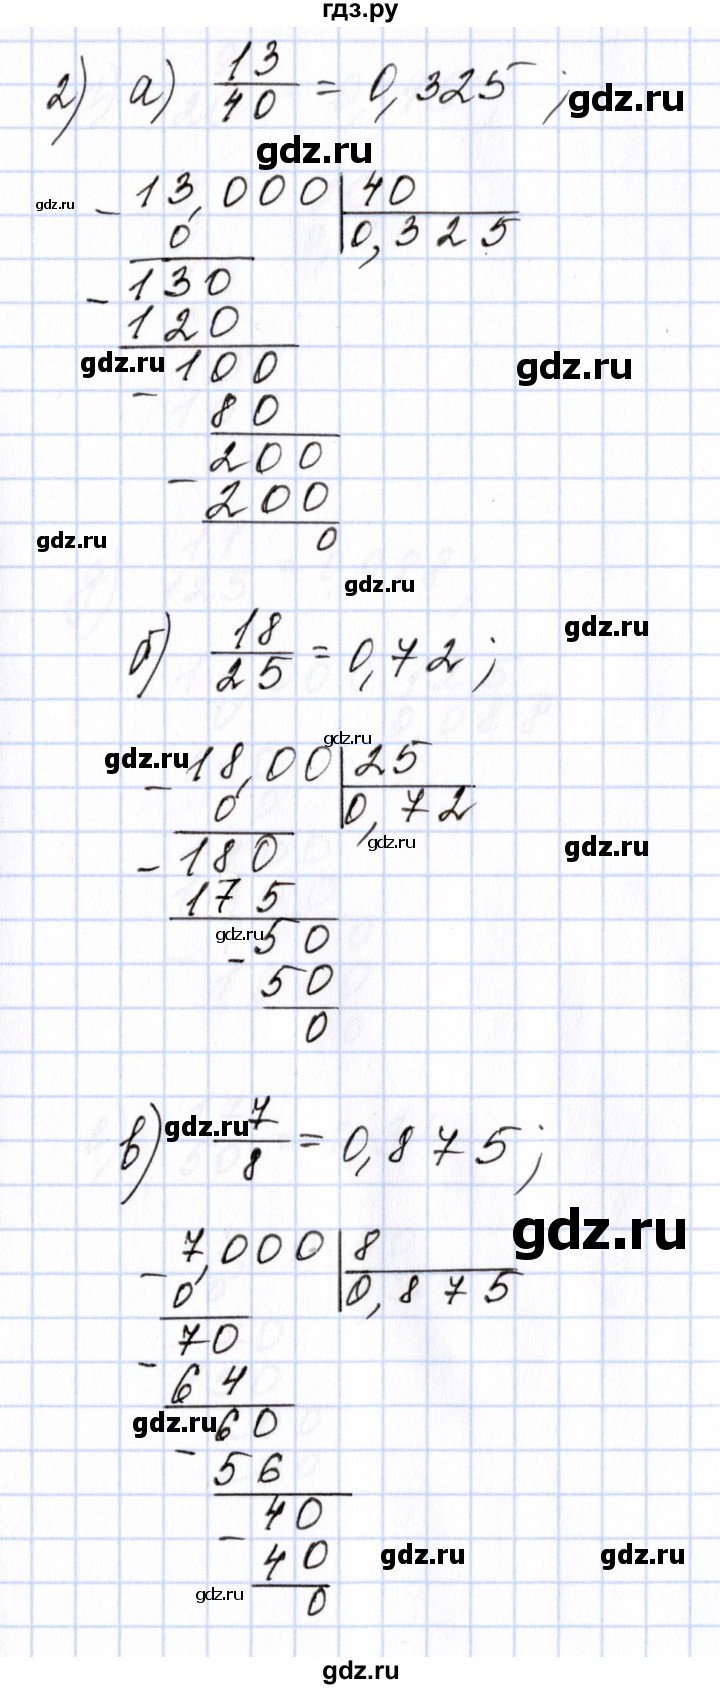 гдз.ру
2) а) 13/40 = 0,325 ;
gdz.ru
gdz.ru
gdz.ru
- 13,000 | 40
0 | 0,325
- 130
120
gdz.ru
100
gdz.ru
- 80
200
- 200
gdz.ru
0
gdz.ru
gdz.ru
б) 18/25 = 0,72 ;
gdz.ru
gdz.ru
- 18,00 | 25
0 | 0,72
gdz.ru
gdz.ru
- 180
175
gdz.ru
50
- 50
0
в) 7/8 = 0,875 ;
gdz.ru
gdz.ru
- 7,000 | 8
0 | 0,875
70
- 64
gdz.ru
60
- 56
40
- 40
gdz.ru
gdz.ru
gdz.ru
0
gdz.ru